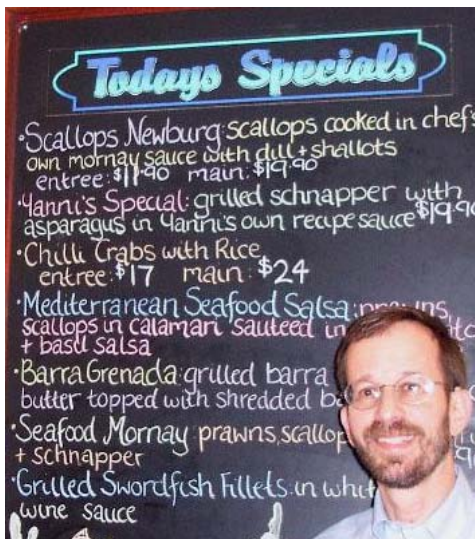 Todays Specials
·Scallops Newburg: scallops cooked in chef's
own mornay sauce with dill + shallots
entree: $11.90 main: $19.90
·Yanni's Special: grilled schnapper with
asparagus in Yanni's own recipe sauce $19.90
·Chilli Crabs with Rice
entree: $17 main: $24
·Mediterranean Seafood Salsa: prawns,
scallops in calamari sauteed in
+ basil salsa
·Barra Grenada: grilled barra
butter topped with shredded
·Seafood Mornay prawns, scallop
+ schnapper
·Grilled Swordfish Fillets: in
wine sauce